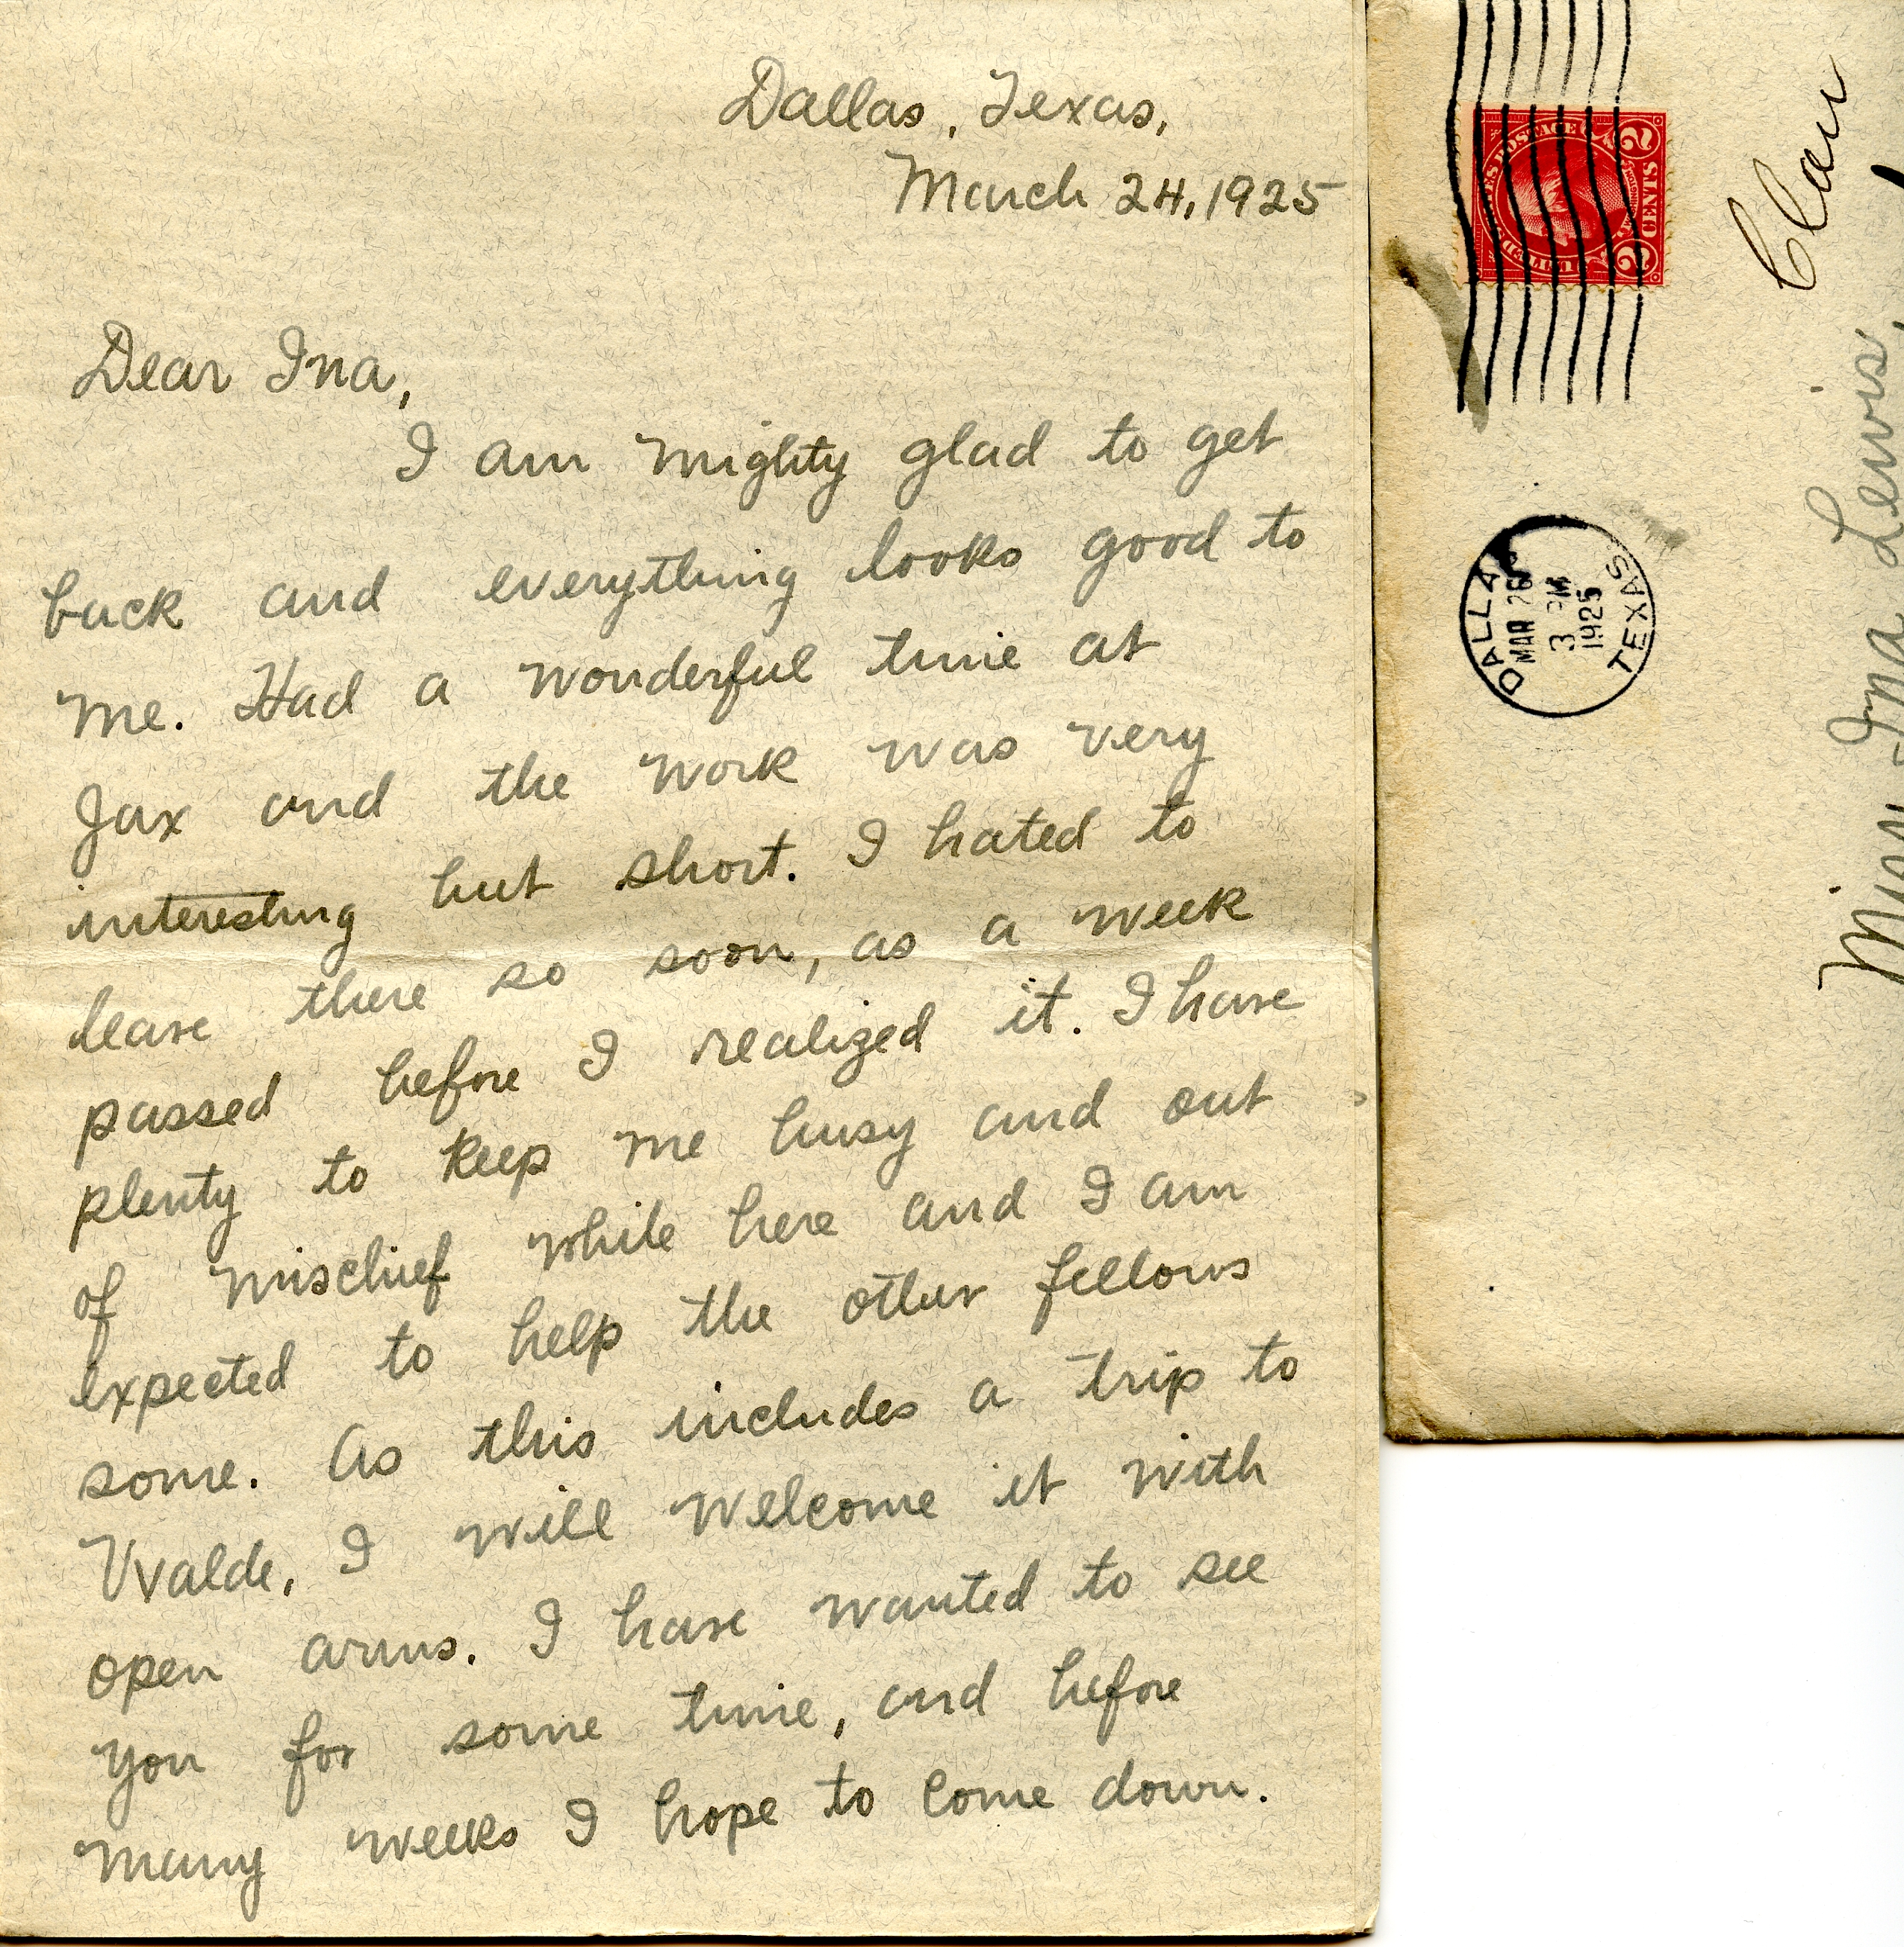 Dallas, Texas,
March 24, 1925
Dear Ina,
I am mighty glad to get
back and everything looks good to
me. Had a wonderful time at
Jax and the work was very
interesting but short. I hated to
leave there so soon, as a week
passed before I realized it. I have
plenty to keep me busy and out
of mischief while here and I am
expected to help the other fellows
some. As this includes a trip to
Uvalde, I will welcome it with
open arms. I have wanted to see
you for some time, and before
many weeks I hope to come down.
POSTAGE
2 CENTS 2
DALLAS
MAR 26
3 PM
1925
TEXAS
Miss Ina Lewis,